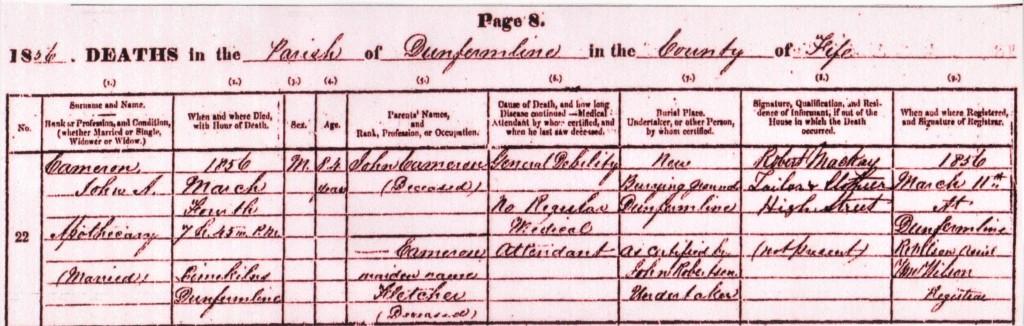 Page 8.
1856. DEATHS in the Parish of Dunfermline in the County of Fife
(1.) (2.) (3.) (4.) (5.) (6.) (7.) (8.) (9.)
No.
Surname and Name.
Rank or Profession, and Condition,
(whether Married or Single,
Widower or Widow.)
When and where Died,
with Hour of Death.
Sex.
Age.
Parents' Names,
and
Rank, Profession, or Occupation.
Cause of Death, and how long
Disease continued—Medical
Attendant by whom certified, and
when he last saw deceased.
Burial Place.
Undertaker, or other Person,
by whom certified.
Signature, Qualification, and Resi-
dence of Informant, if out of the
House in which the Death
occurred.
When and where Registered,
and Signature of Registrar.
22
Cameron
John A.
Apothecary
(Married)
1856
March
Fourth
7 h. 45 m. P.M.
Limekilns
Dunfermline
M.
84
years
John Cameron
(Deceased)
Cameron
maiden name
Fletcher
(Deceased)
General Debility
No Regular
Medical
Attendant
New
Burying ground
Dunfermline
as certified by
John Robertson
Undertaker
Robert Mackay
Tailor & Clothier
High Street
(not present)
1856
March 11th
At
Dunfermline
Wm Wilson
Registrar